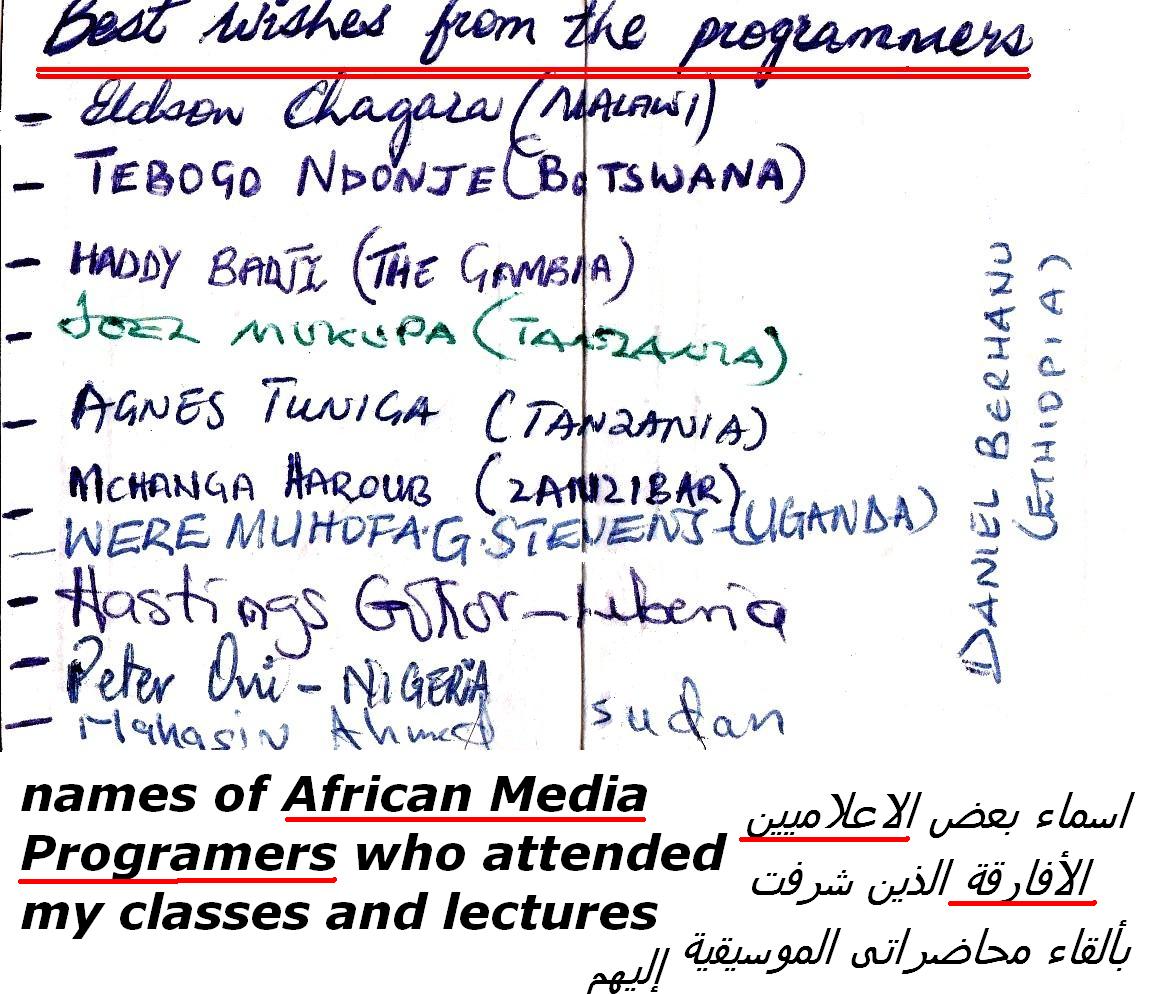 Best wishes from the programmers
- Eldson Chagara (MALAWI)
- TEBOGO NDONJE (BOTSWANA)
- HADDY BADJI (THE GAMBIA)
- JOEL MUKUPA (TANZANIA)
- AGNES TUNIGA (TANZANIA)
- MCHANGA HAROUB (ZANZIBAR)
- WERE MUHOFA.G.STEVENS-(UGANDA)
- Hastings - Liberia
- Peter - NIGERIA
- Mahasin Ahmed sudan
DANIEL BERHANU
(ETHIOPIA)
names of African Media
Programers who attended
my classes and lectures
اسماء بعض الاعلاميين
الأفارقة الذين شرفت
بألقاء محاضراتى الموسيقية
إليهم